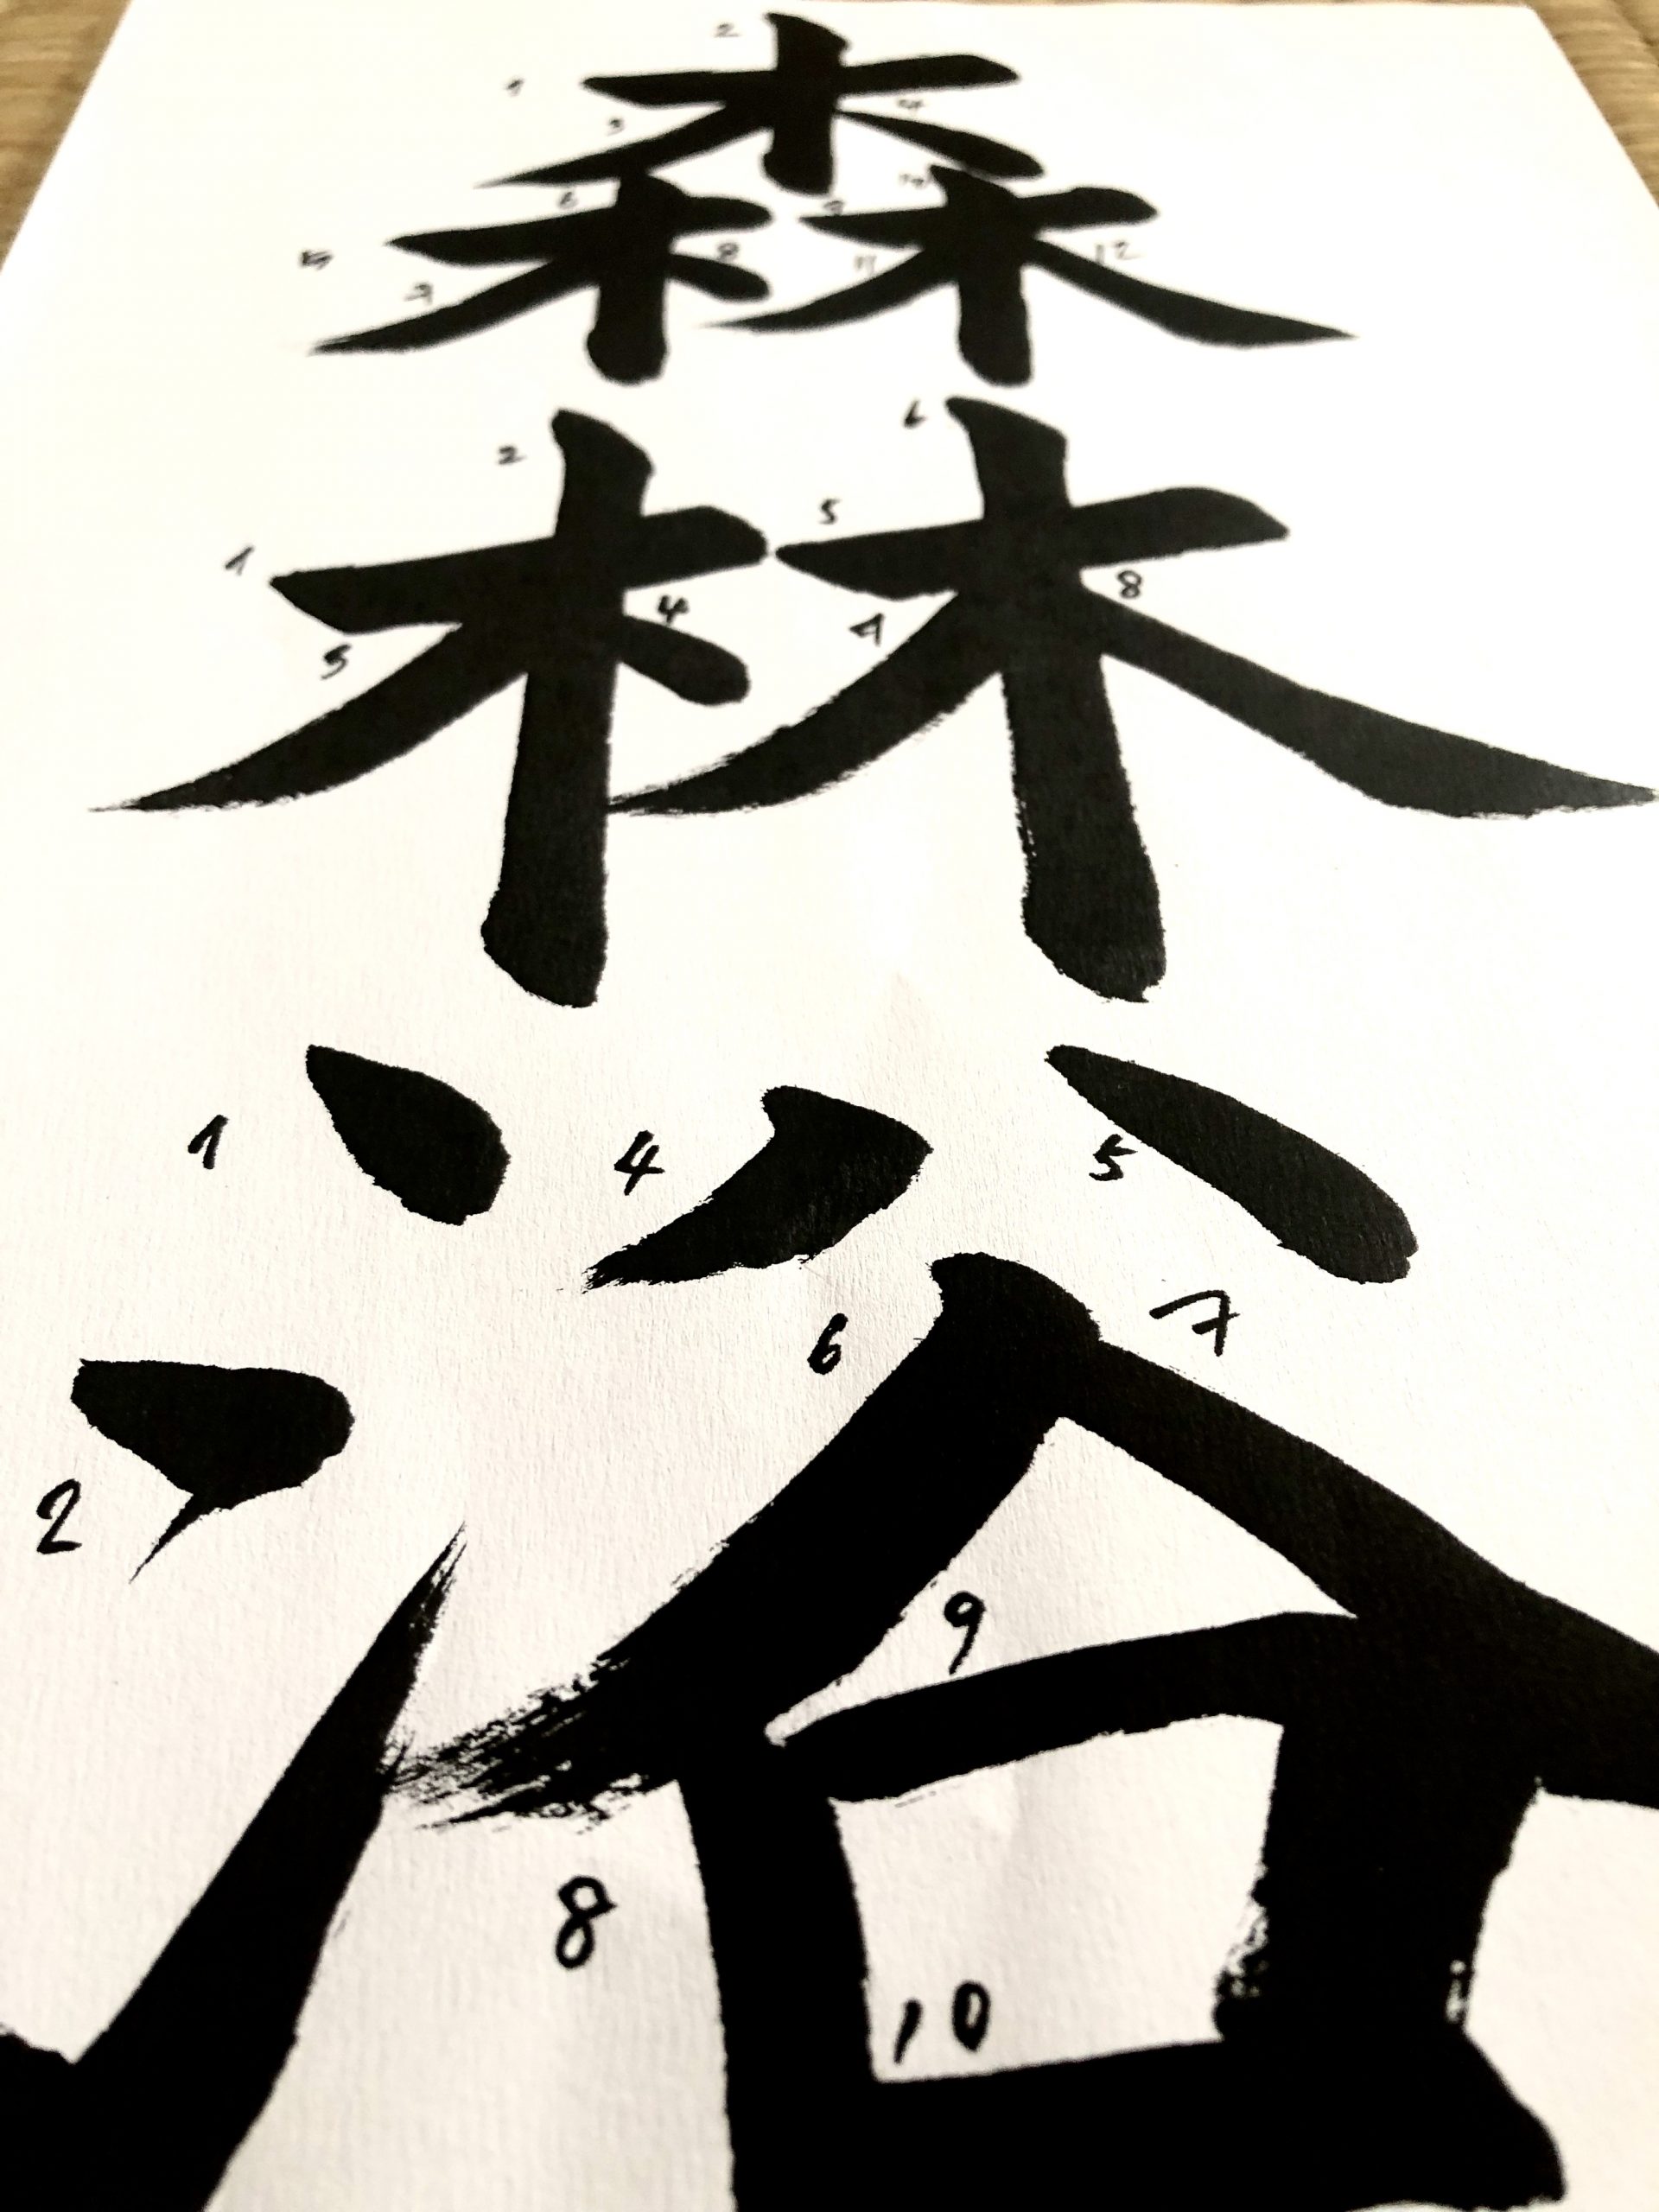 森林浴
1 2 3 4 5 6 7 8 9 10 11 12
1 2 3 4 5 6 7 8
1 2 4 5 6 7 8 9 10